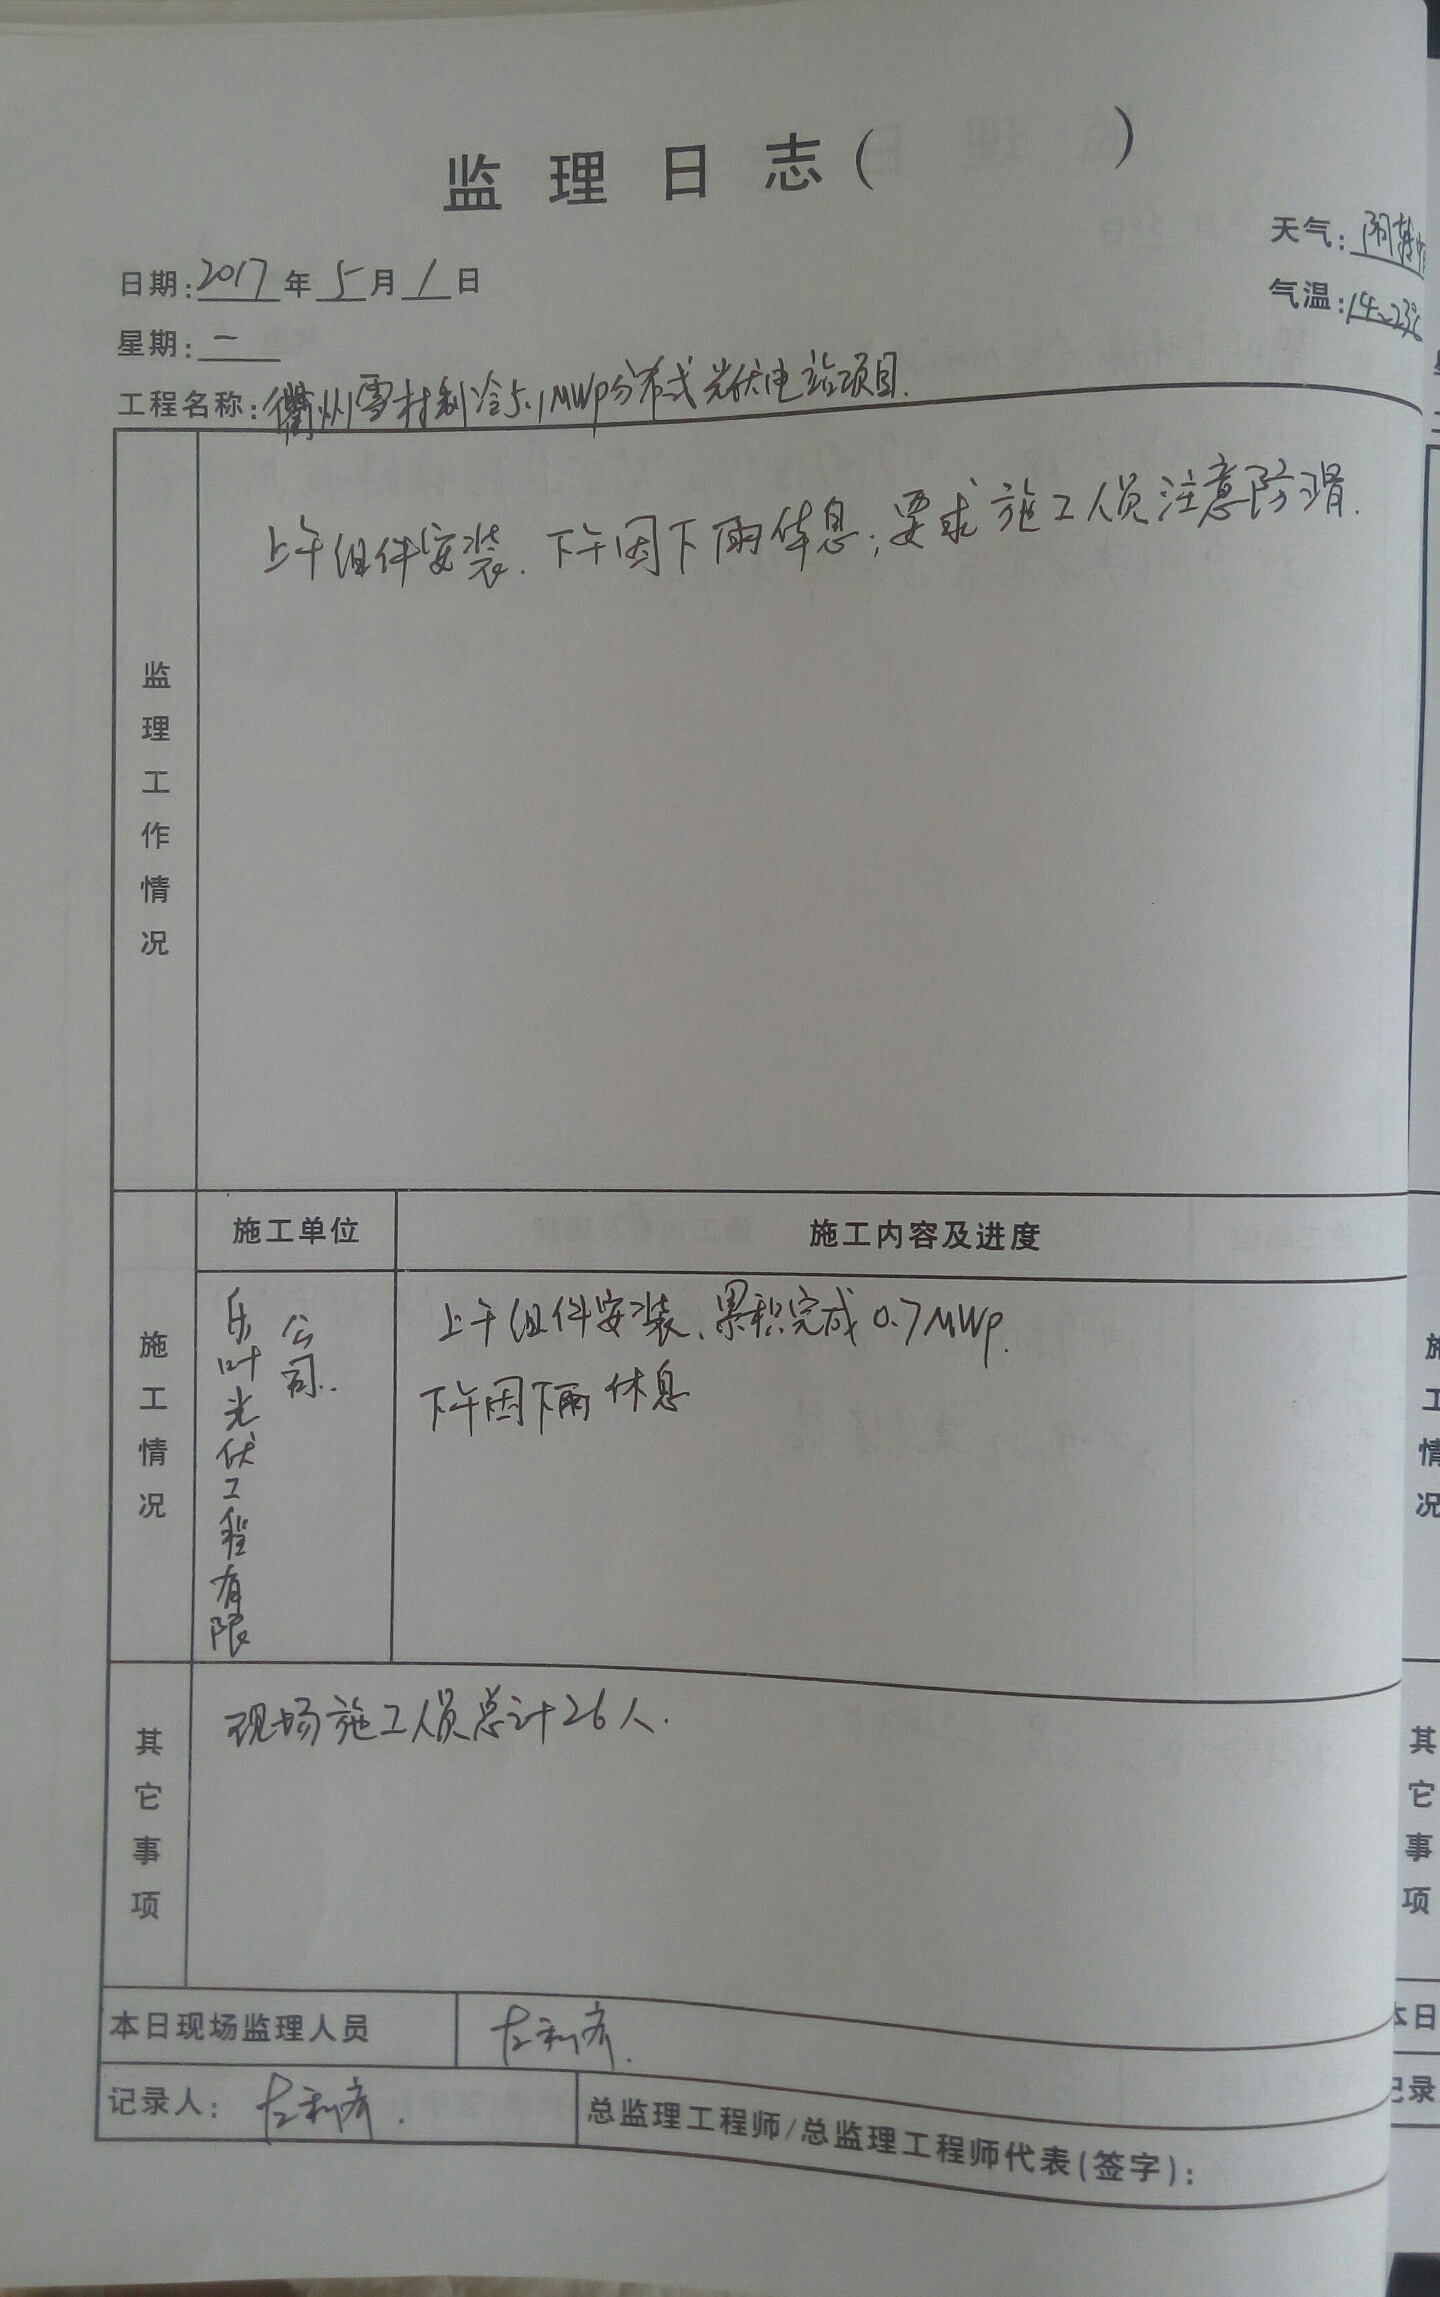 监理日志( )
天气:阴转
日期:2017年5月1日
气温:14~23℃
星期:一
工程名称:衢州雪村制冷5.1MWp分布式光伏电站项目.
监理工作情况
上午组件安装.下午因下雨休息;要求施工人员注意防滑.
施工单位
施工内容及进度
施工情况
乐叶光伏工程有限
公司.
上午组件安装、累积完成0.7MWp.
下午因下雨休息
其它事项
现场施工人员总计26人.
本日现场监理人员
记录人:
总监理工程师/总监理工程师代表(签字):
施工情况
其它事项
本日
记录